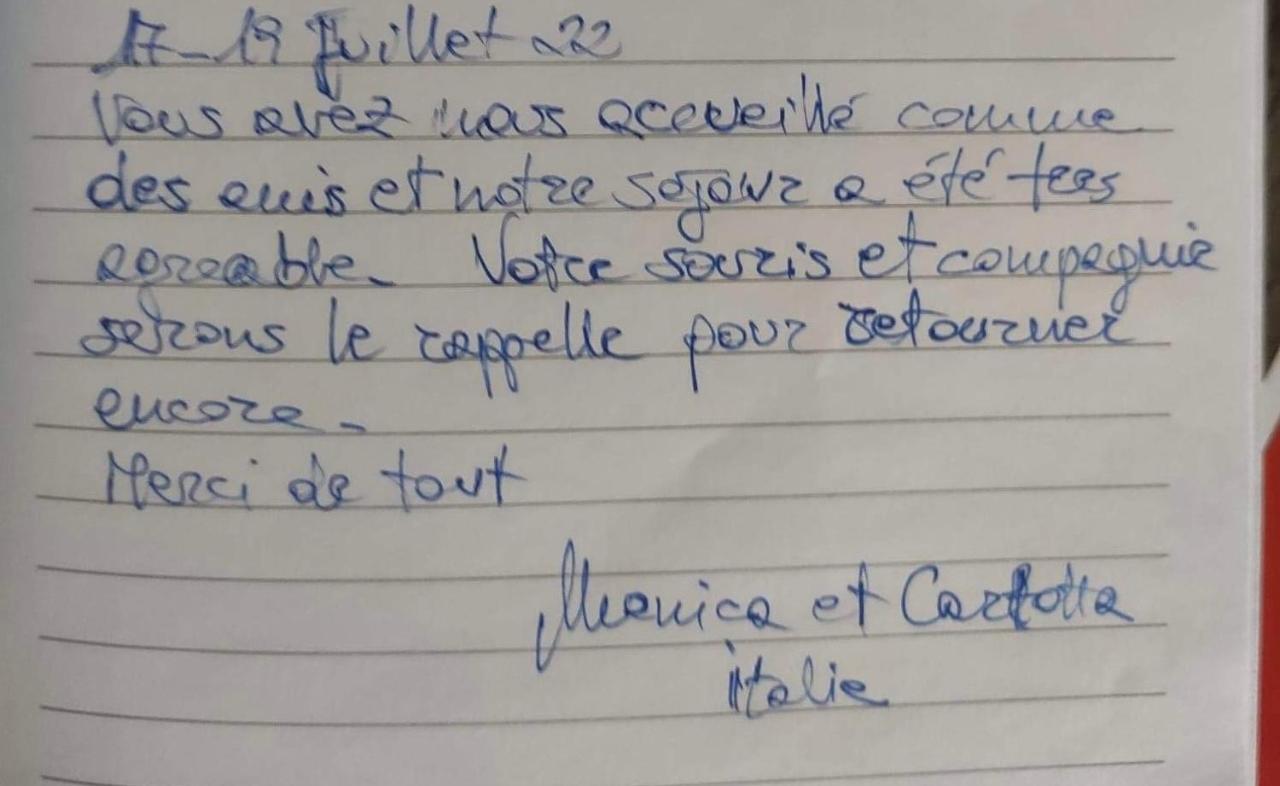 17-19 Juillet 22
Vous avez nous acceuillé comme
des amis et notre séjour a été tres
agreable. Votre souris et compagnie
serons le rappelle pour retourner
encore.
Merci de tout
Monica et Carlotta
italie